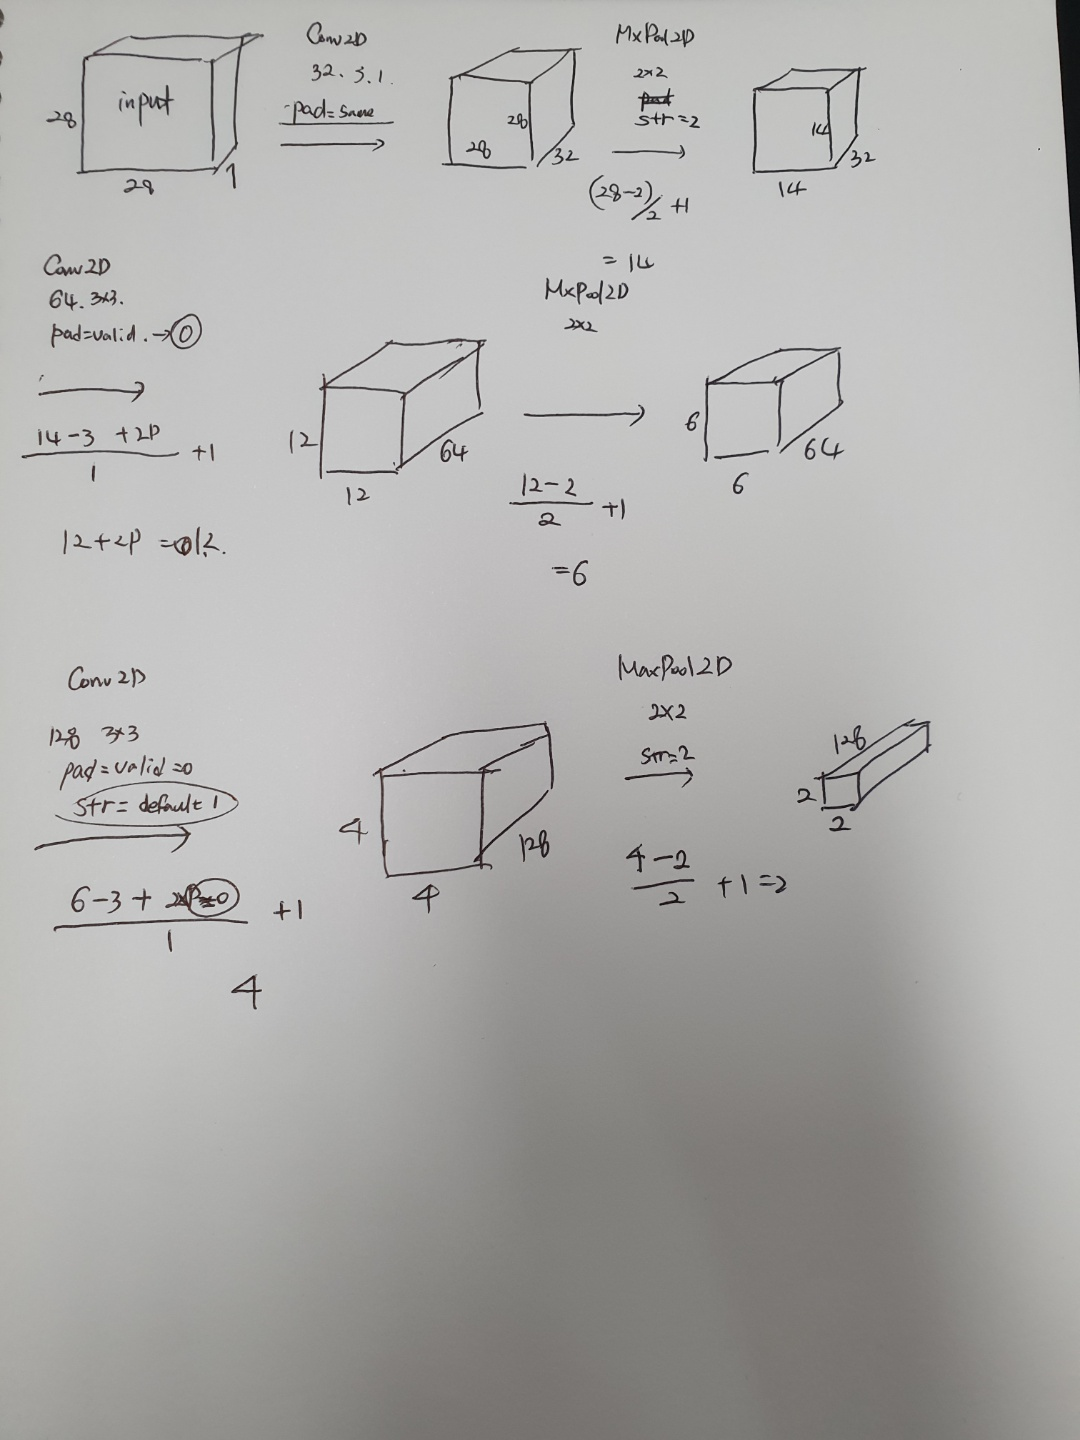 Conv2D
32. 3. 1.
pad=same
input
28
28
1
28
28
32
MxPool2D
2x2
str=2
(28-2)/2 +1
= 14
14
14
32
Conv2D
64. 3x3.
pad=valid. → 0
14-3 +2P
1
+1
12+2P = 12.
12
12
64
MxPool2D
2x2
12-2
2
+1
=6
6
6
64
Conv2D
128 3x3
pad=valid=0
str= default 1
6-3+ 2xP=0
1
+1
4
4
4
128
MaxPool2D
2x2
str=2
4-2
2
+1=2
128
2
2